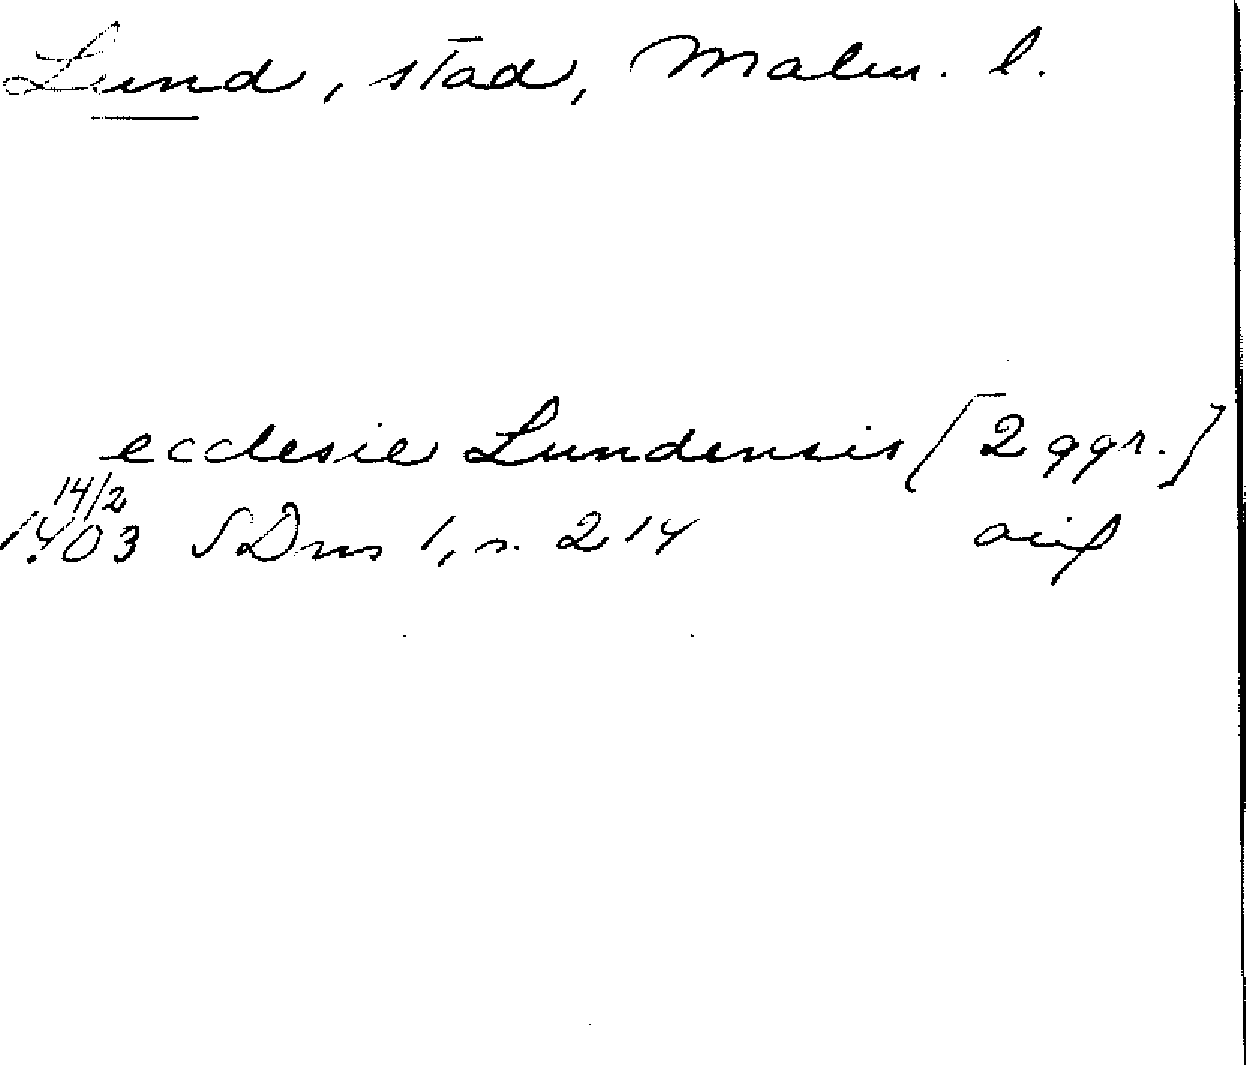 Lund, stad, Malm. l.
ecclesie Lundensis [2 ggr.]
14/2
1403 SDns 1, s. 214 orig